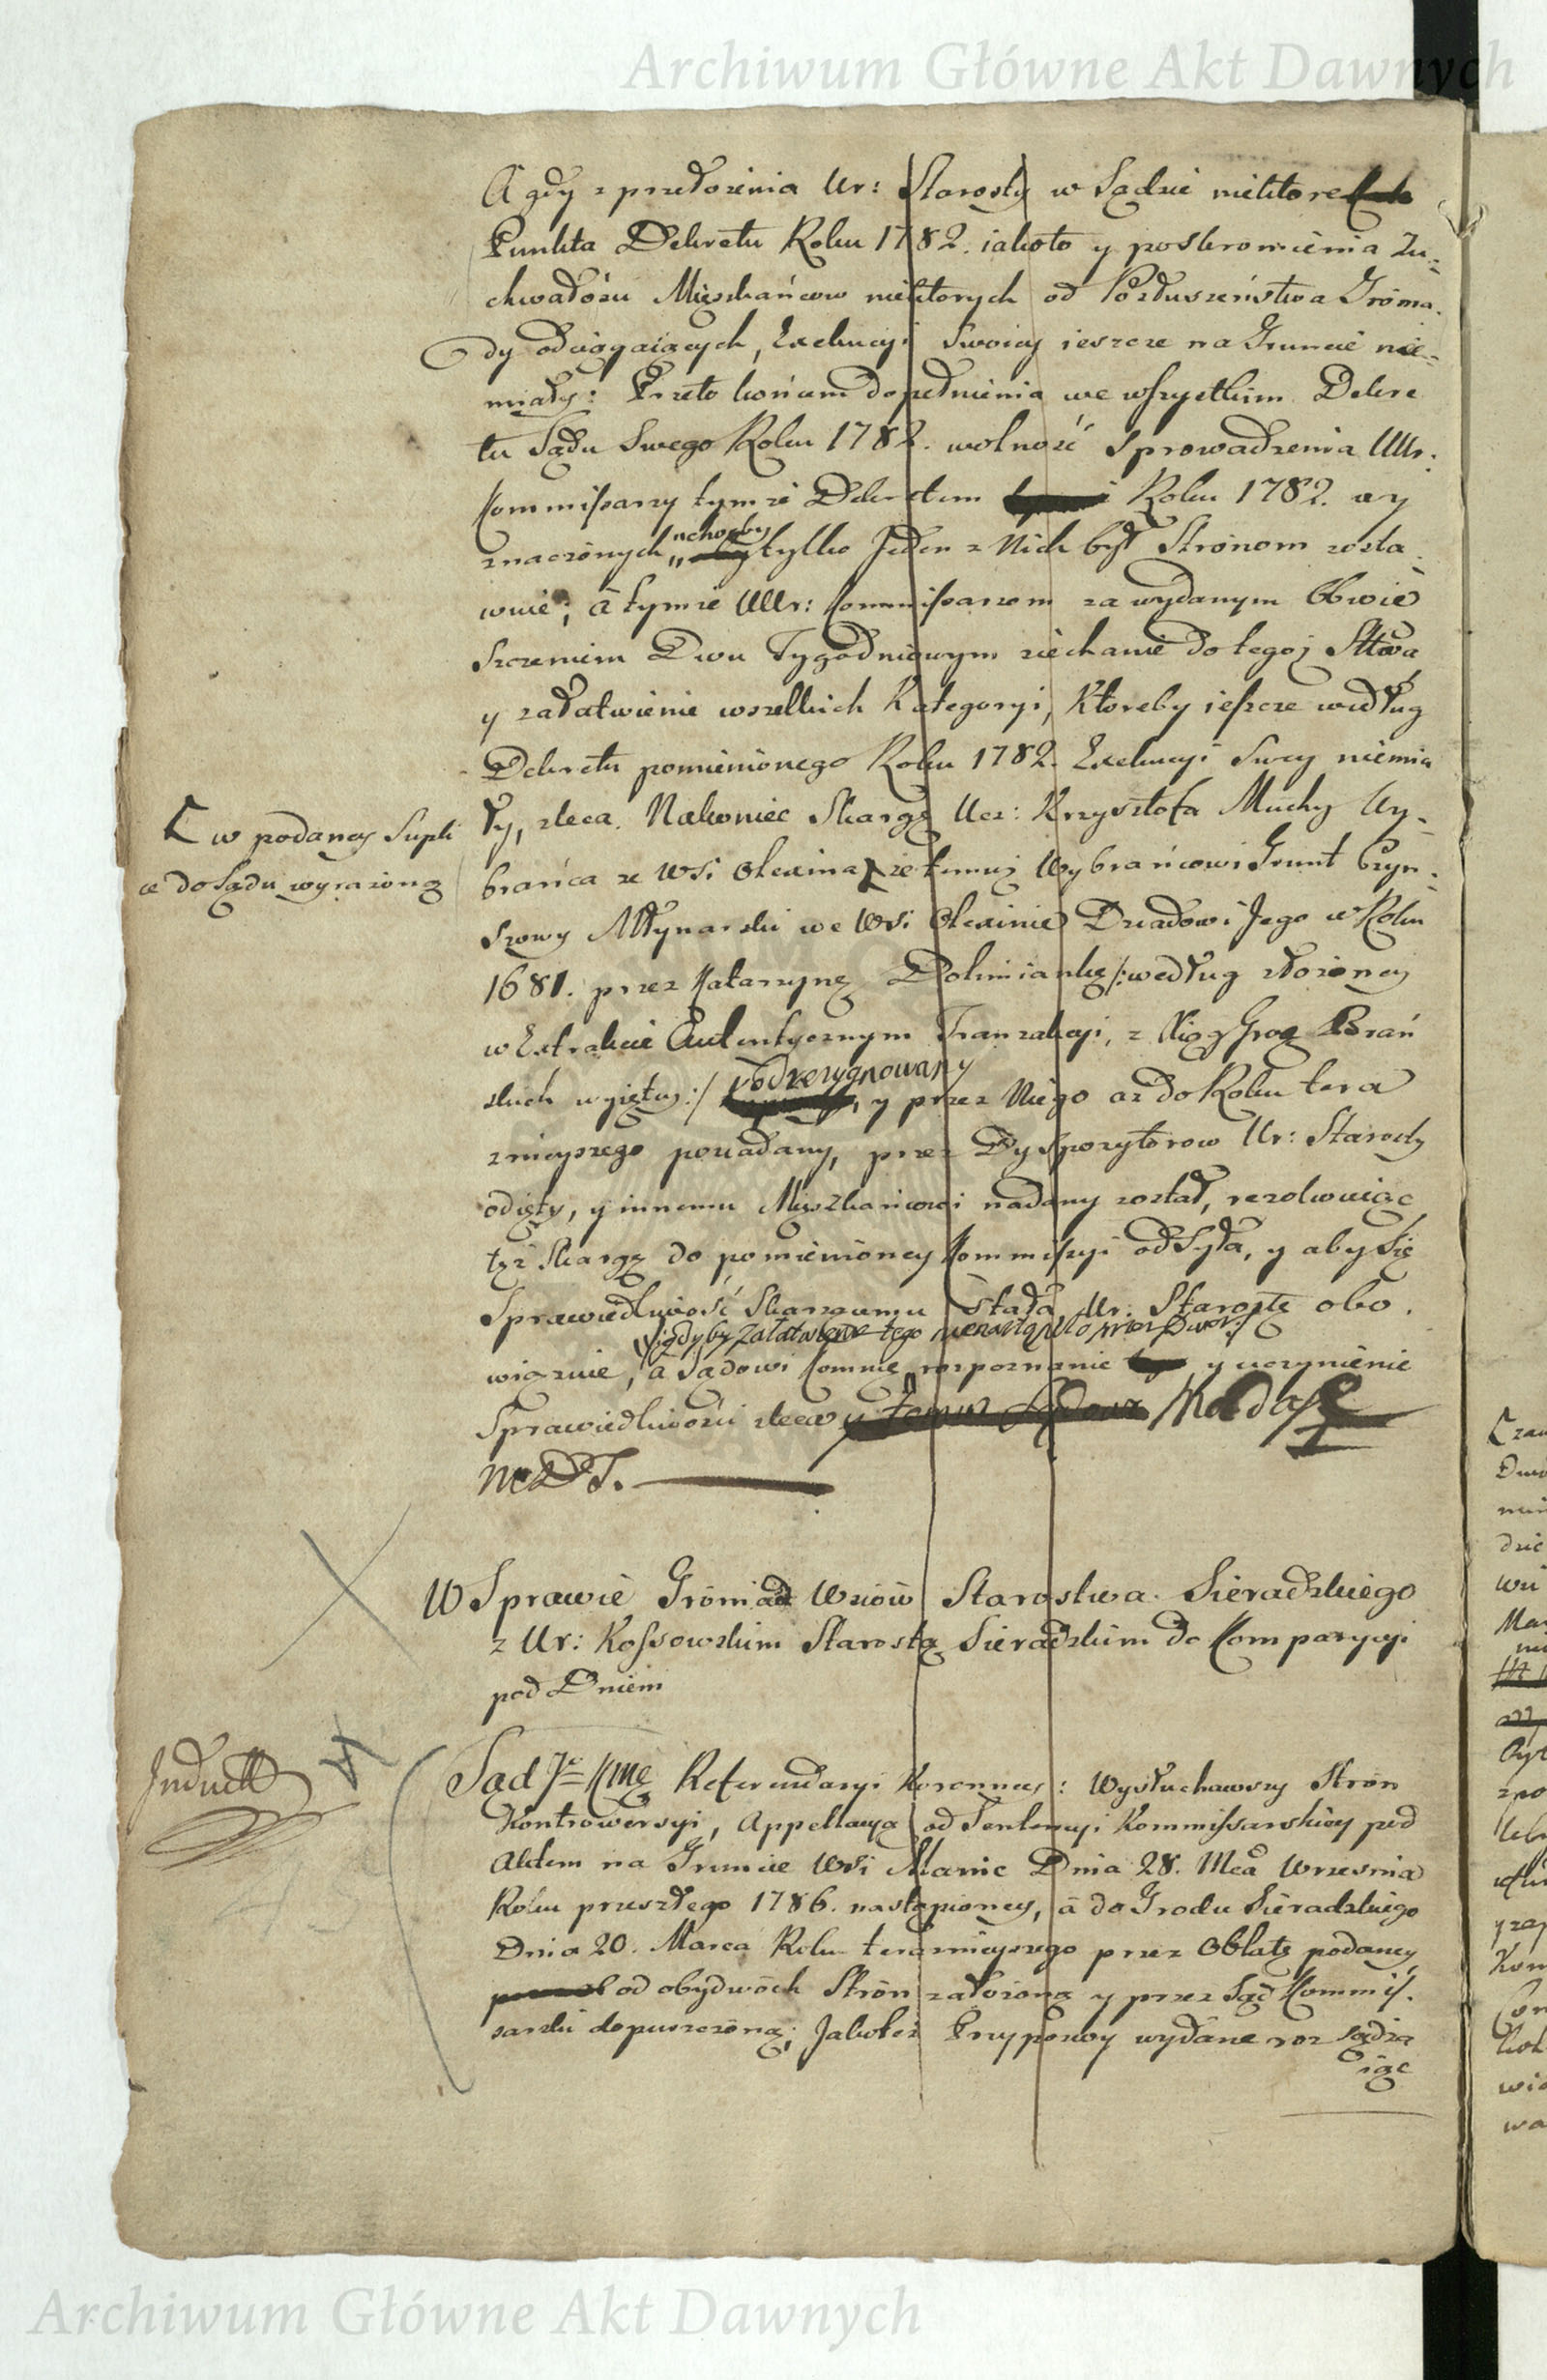 Archiwum Główne Akt Dawnych
A gdy z przełożenia Ur: Starosty w Sądzie niektore
Punkta Dekretu Roku 1782. iakoto y poskromienia Zu=
chwałości Mieszkańcow niektorych od Posłuszeństwa Groma=
dy odciągaiących, Exekucyi Swoiey ieszcze na Gruncie nie=
miały: Przeto końcem dopełnienia we wszystkim Dekre
tu Sądu Swego Roku 1782. wolność Sprowadzenia UUr:
Kommissarzy tymże Dekretem Roku 1782. wy
znaczonych, choćby tylko Jeden z Nich był Stronom zosta=
wuie; á tymże UUr: Kommissarzom za wydanym Obwie
szczeniem Dwu Tygodniowym ziechanie do tegoż Sttwa
y załatwienie wszelkich Kategoryi, Ktoreby ieszcze według
Dekretu pomienionego Roku 1782. Exekucyi Swey niemia
ły, zleca. Nakoniec Skargę Ucz: Krzysztofa Muchy Wy=
[ w podaney Supli
ce do Sądu wyrażoną
brańca ze Wsi Olexina [ że temuż Wybrańcowi Grunt Czyn=
szowy Młynarski we Wsi Olexinie Dziadowi Jego w Roku
1681. przez Katarzynę Dolmiankę /: według złożoney
w Extrakcie Autentycznym Tranzakcyi, z Xiąg Grog Brań
skich wyiętey :/ rezygnowany, y przez Niego aż do Roku tera
znieyszego posiadany, przez Dyspozytorow Ur: Starosty
odięty, y innemu Mieszkańcowi nadany został, rezolwuiąc
tęż Skargę do pomienioney Kommissyi odsyła, y aby się
Sprawiedliwość Skarżącemu stała, Ur. Starostę obo=
/: gdyby załatwienie tego nienastąpiło przez Dwor :/
wiązuie, á Sądowi Kommę rozpoznanie y uczynienie
Sprawiedliwości zleca
W Sprawie Gromad Wsiów Starostwa Sieradzkiego
z Ur: Kossowskim Starostą Sieradzkim do Komparycyi
pod Dniem
Inductt
Sąd J. KMę Referendaryi Koronney: Wysłuchawszy Stron
Kontrowersyi, Appellacyą od Sentencyi Kommissarskiey pod
Aktem na Gruncie Wsi Mannic Dnia 28. Mca Wrzesnia
Roku przeszłego 1786. nastąpioney, á do Grodu Sieradzkiego
Dnia 20. Marca Roku teraznieyszego przez Oblatę podaney
od obydwóch Stron założoną y przez Sąd Kommis=
sarski dopuszczoną; Jakoteż Przypozwy wydane rozsądza
iąc
Archiwum Główne Akt Dawnych